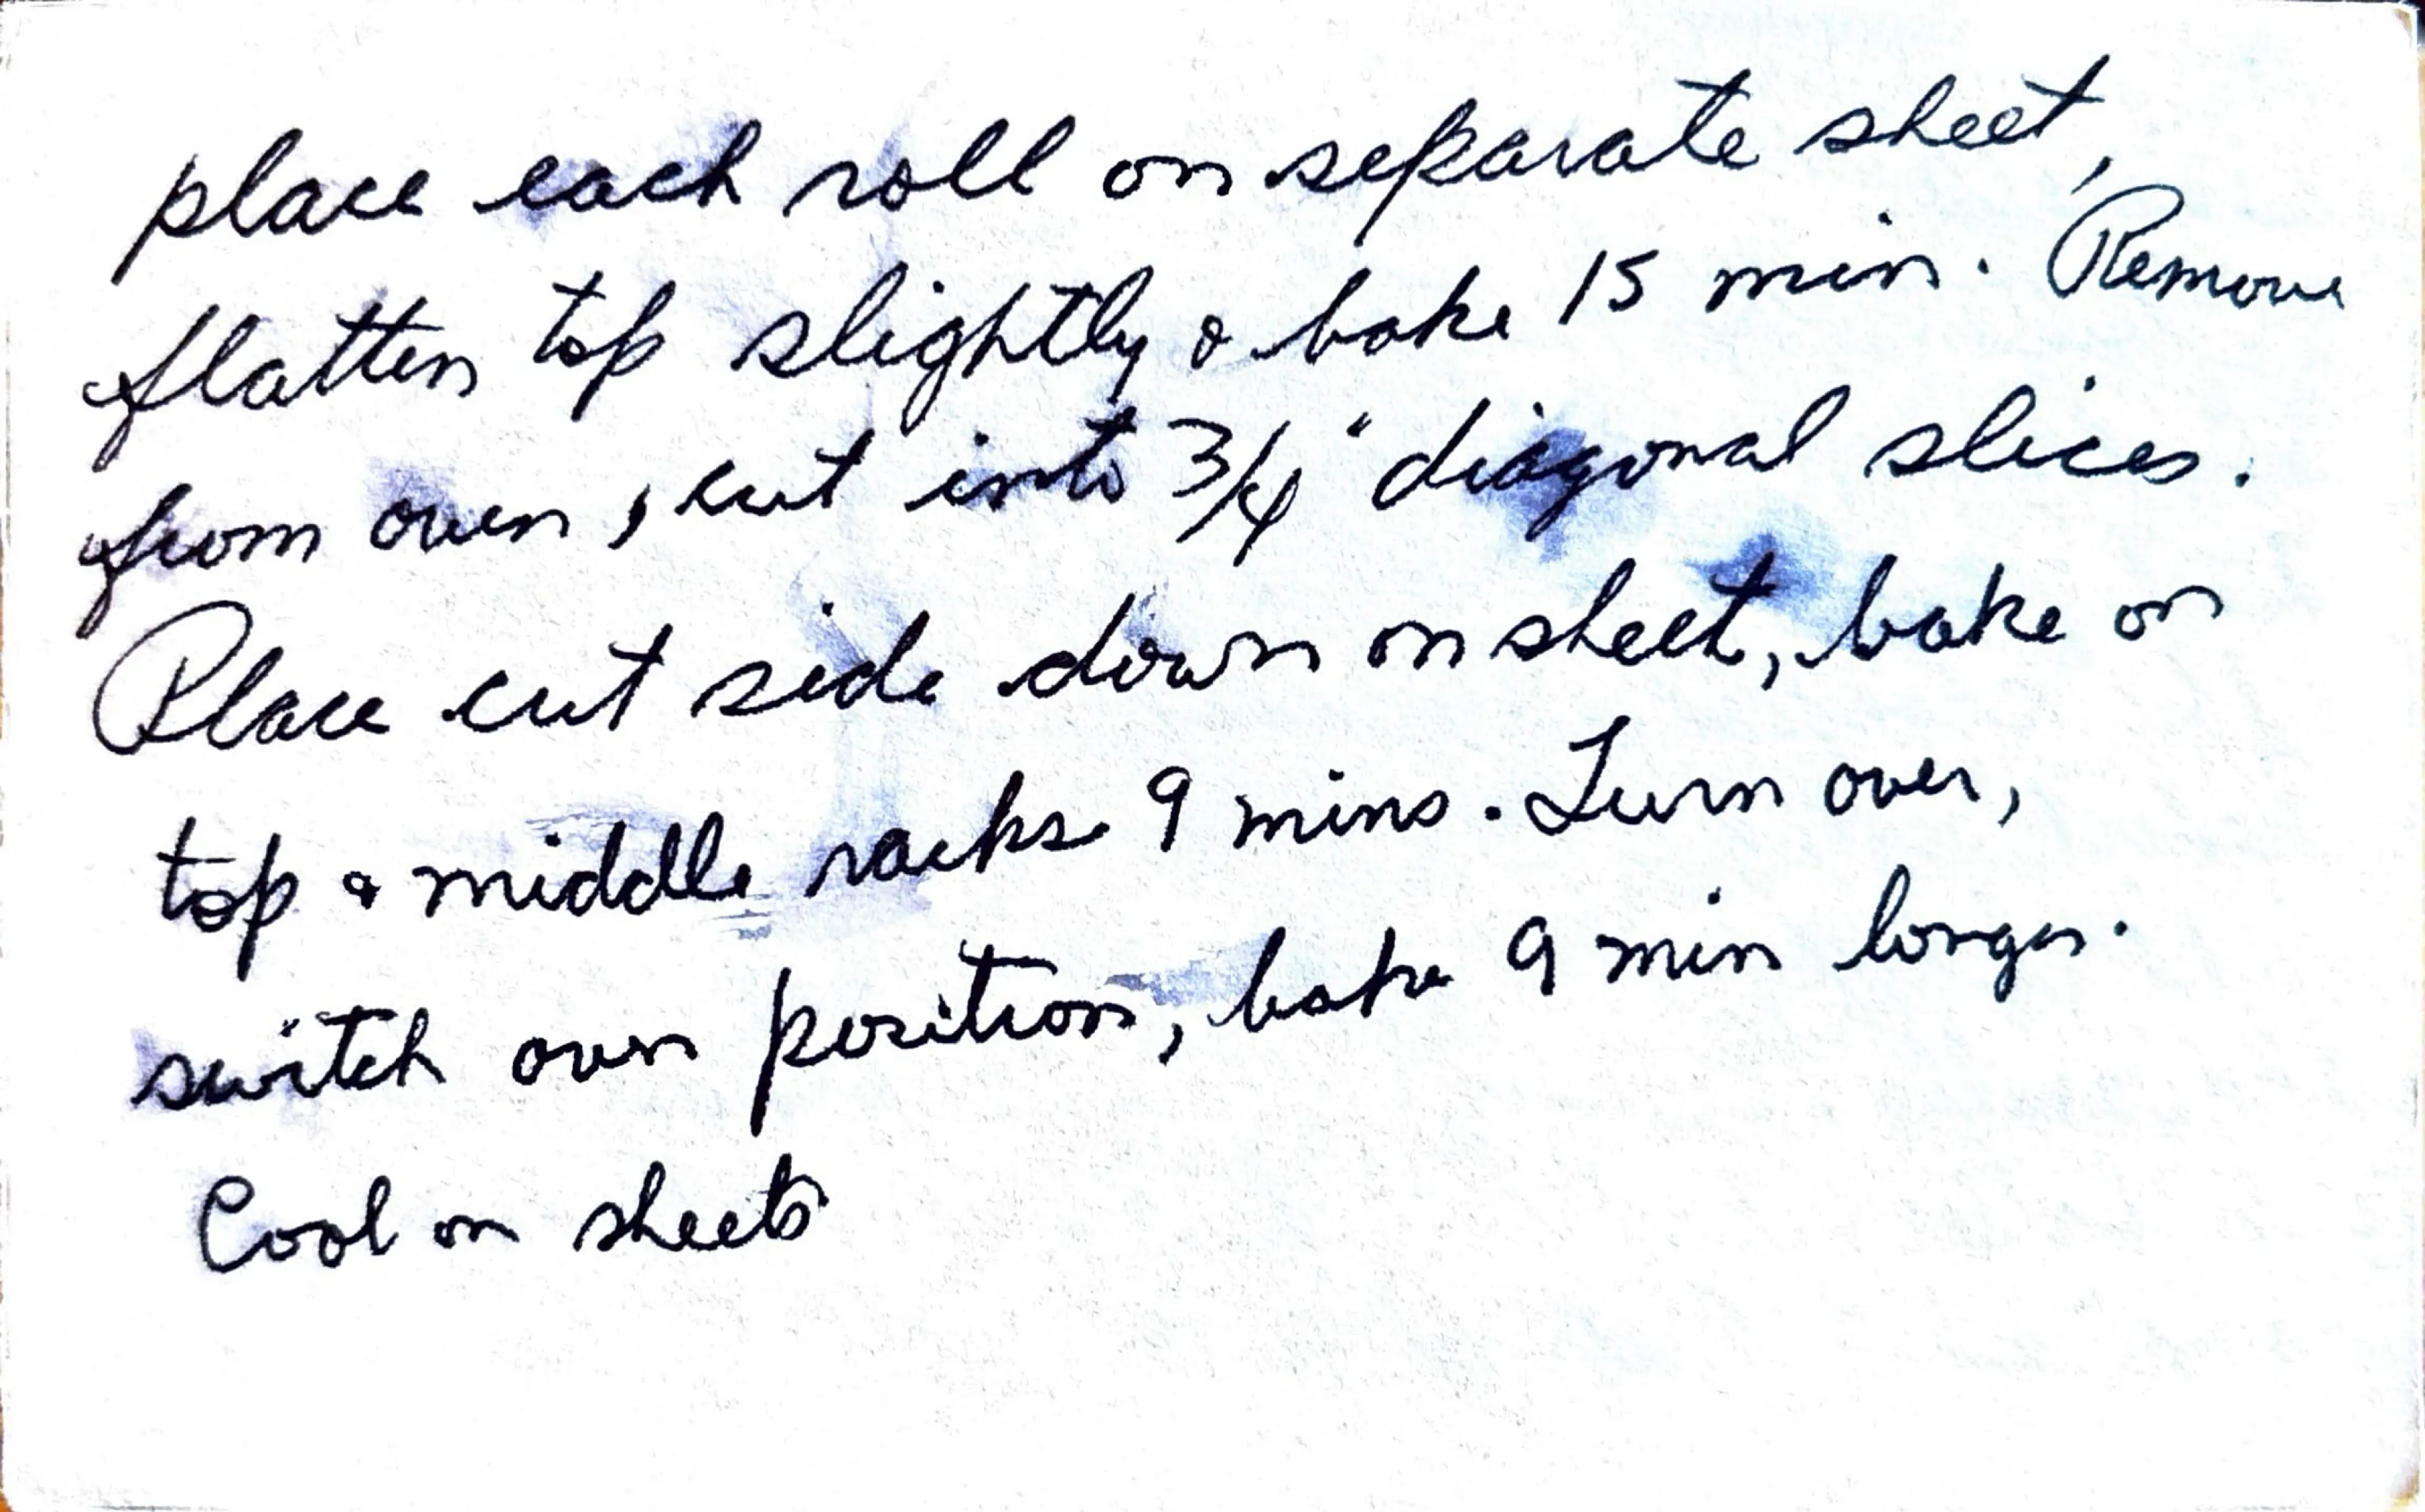 place each roll on separate sheet,
flatten top slightly & bake 15 min. Remove
from oven, cut into 3/4" diagonal slices.
Place cut side down on sheet, bake on
top & middle racks 9 mins. Turn over,
switch oven position, bake 9 min longer.
Cool on sheets